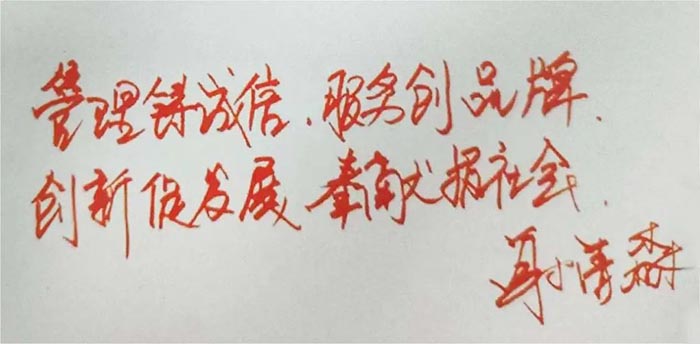 管理铸诚信、服务创品牌、
创新促发展 奉献报社会、